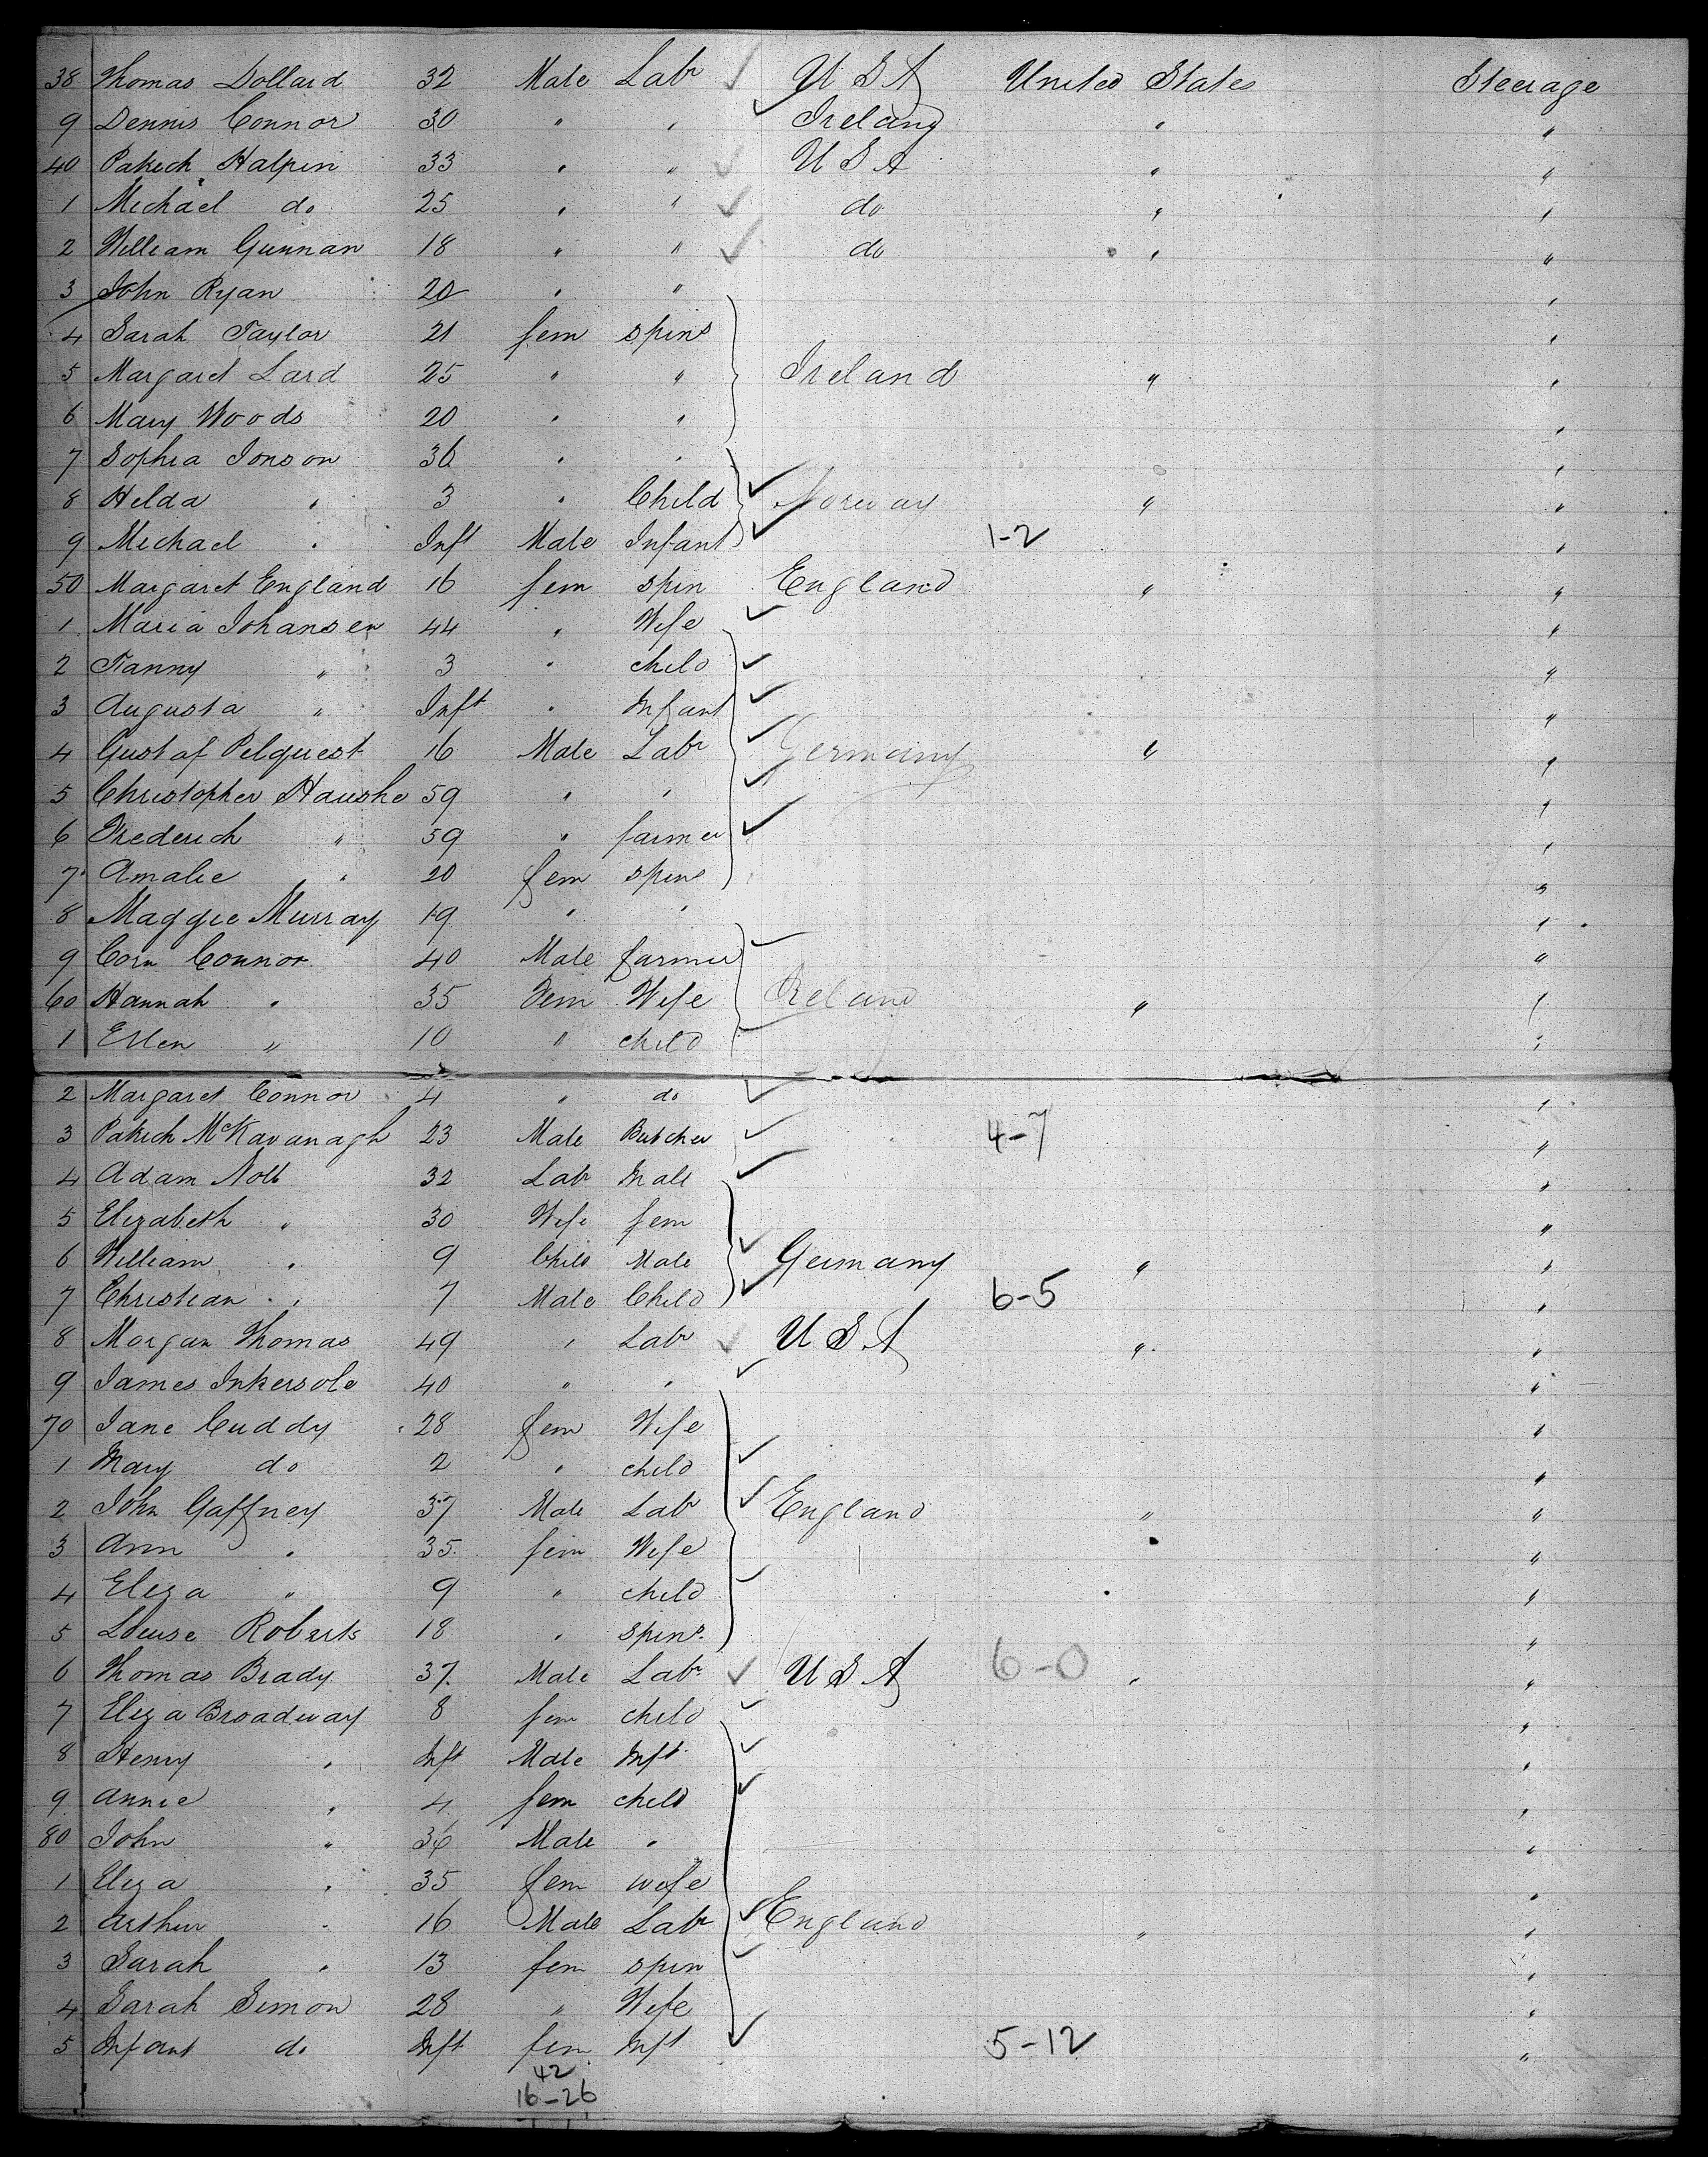 38 Thomas Dollard 32 Male Labr U S A United States Steerage
9 Dennis Connor 30 " " Ireland " "
40 Patrick Halpin 33 " " U S A " "
1 Michael do 25 " " do " "
2 William Gunnan 18 " " do " "
3 John Ryan 20 " " "
4 Sarah Taylor 21 fem spins "
5 Margaret Lard 25 " " Ireland " "
6 Mary Woods 20 " " "
7 Sophia Jonson 36 " " "
8 Helda " 3 " Child Norway " "
9 Michael " Inft Male Infant 1-2 "
50 Margaret England 16 fem spin England " "
1 Maria Johansen 44 " Wife "
2 Fanny " 3 " child "
3 Augusta " Inft " Infant "
4 Gustaf Pelquest 16 Male Labr Germany " "
5 Christopher Haushe 59 " " "
6 Frederich " 59 " farmer "
7 Amalie " 20 fem spins "
8 Maggie Murray 19 " " "
9 Corn Connor 40 Male farmer "
60 Hannah " 35 Fem Wife Ireland " "
1 Ellen " 10 " child "
2 Margaret Connor 4 " do "
3 Patrick McKavanagh 23 Male Butcher 4-7 "
4 Adam Nolt 32 Labr Male "
5 Elizabeth " 30 Wife fem "
6 William " 9 Child Male Germany " "
7 Christian " 7 Male Child 6-5 "
8 Morgan Thomas 49 " Labr U S A " "
9 James Inkersole 40 " " "
70 Jane Cuddy 28 fem Wife "
1 Mary do 2 " child "
2 John Gaffney 37 Male Labr England " "
3 Ann " 35 fem Wife "
4 Eliza " 9 " child "
5 Louise Roberts 18 " spins "
6 Thomas Brady 37 Male Labr U S A 6-0 " "
7 Eliza Broadway 8 fem child "
8 Henry " Inft Male Inft "
9 Annie " 4 fem child "
80 John " 36 Male " "
1 Eliza " 35 fem wife "
2 Arthur " 16 Male Labr England " "
3 Sarah " 13 fem spin "
4 Sarah Simon 28 " Wife "
5 Infant do Inft fem Inft 5-12 "
42
16-26